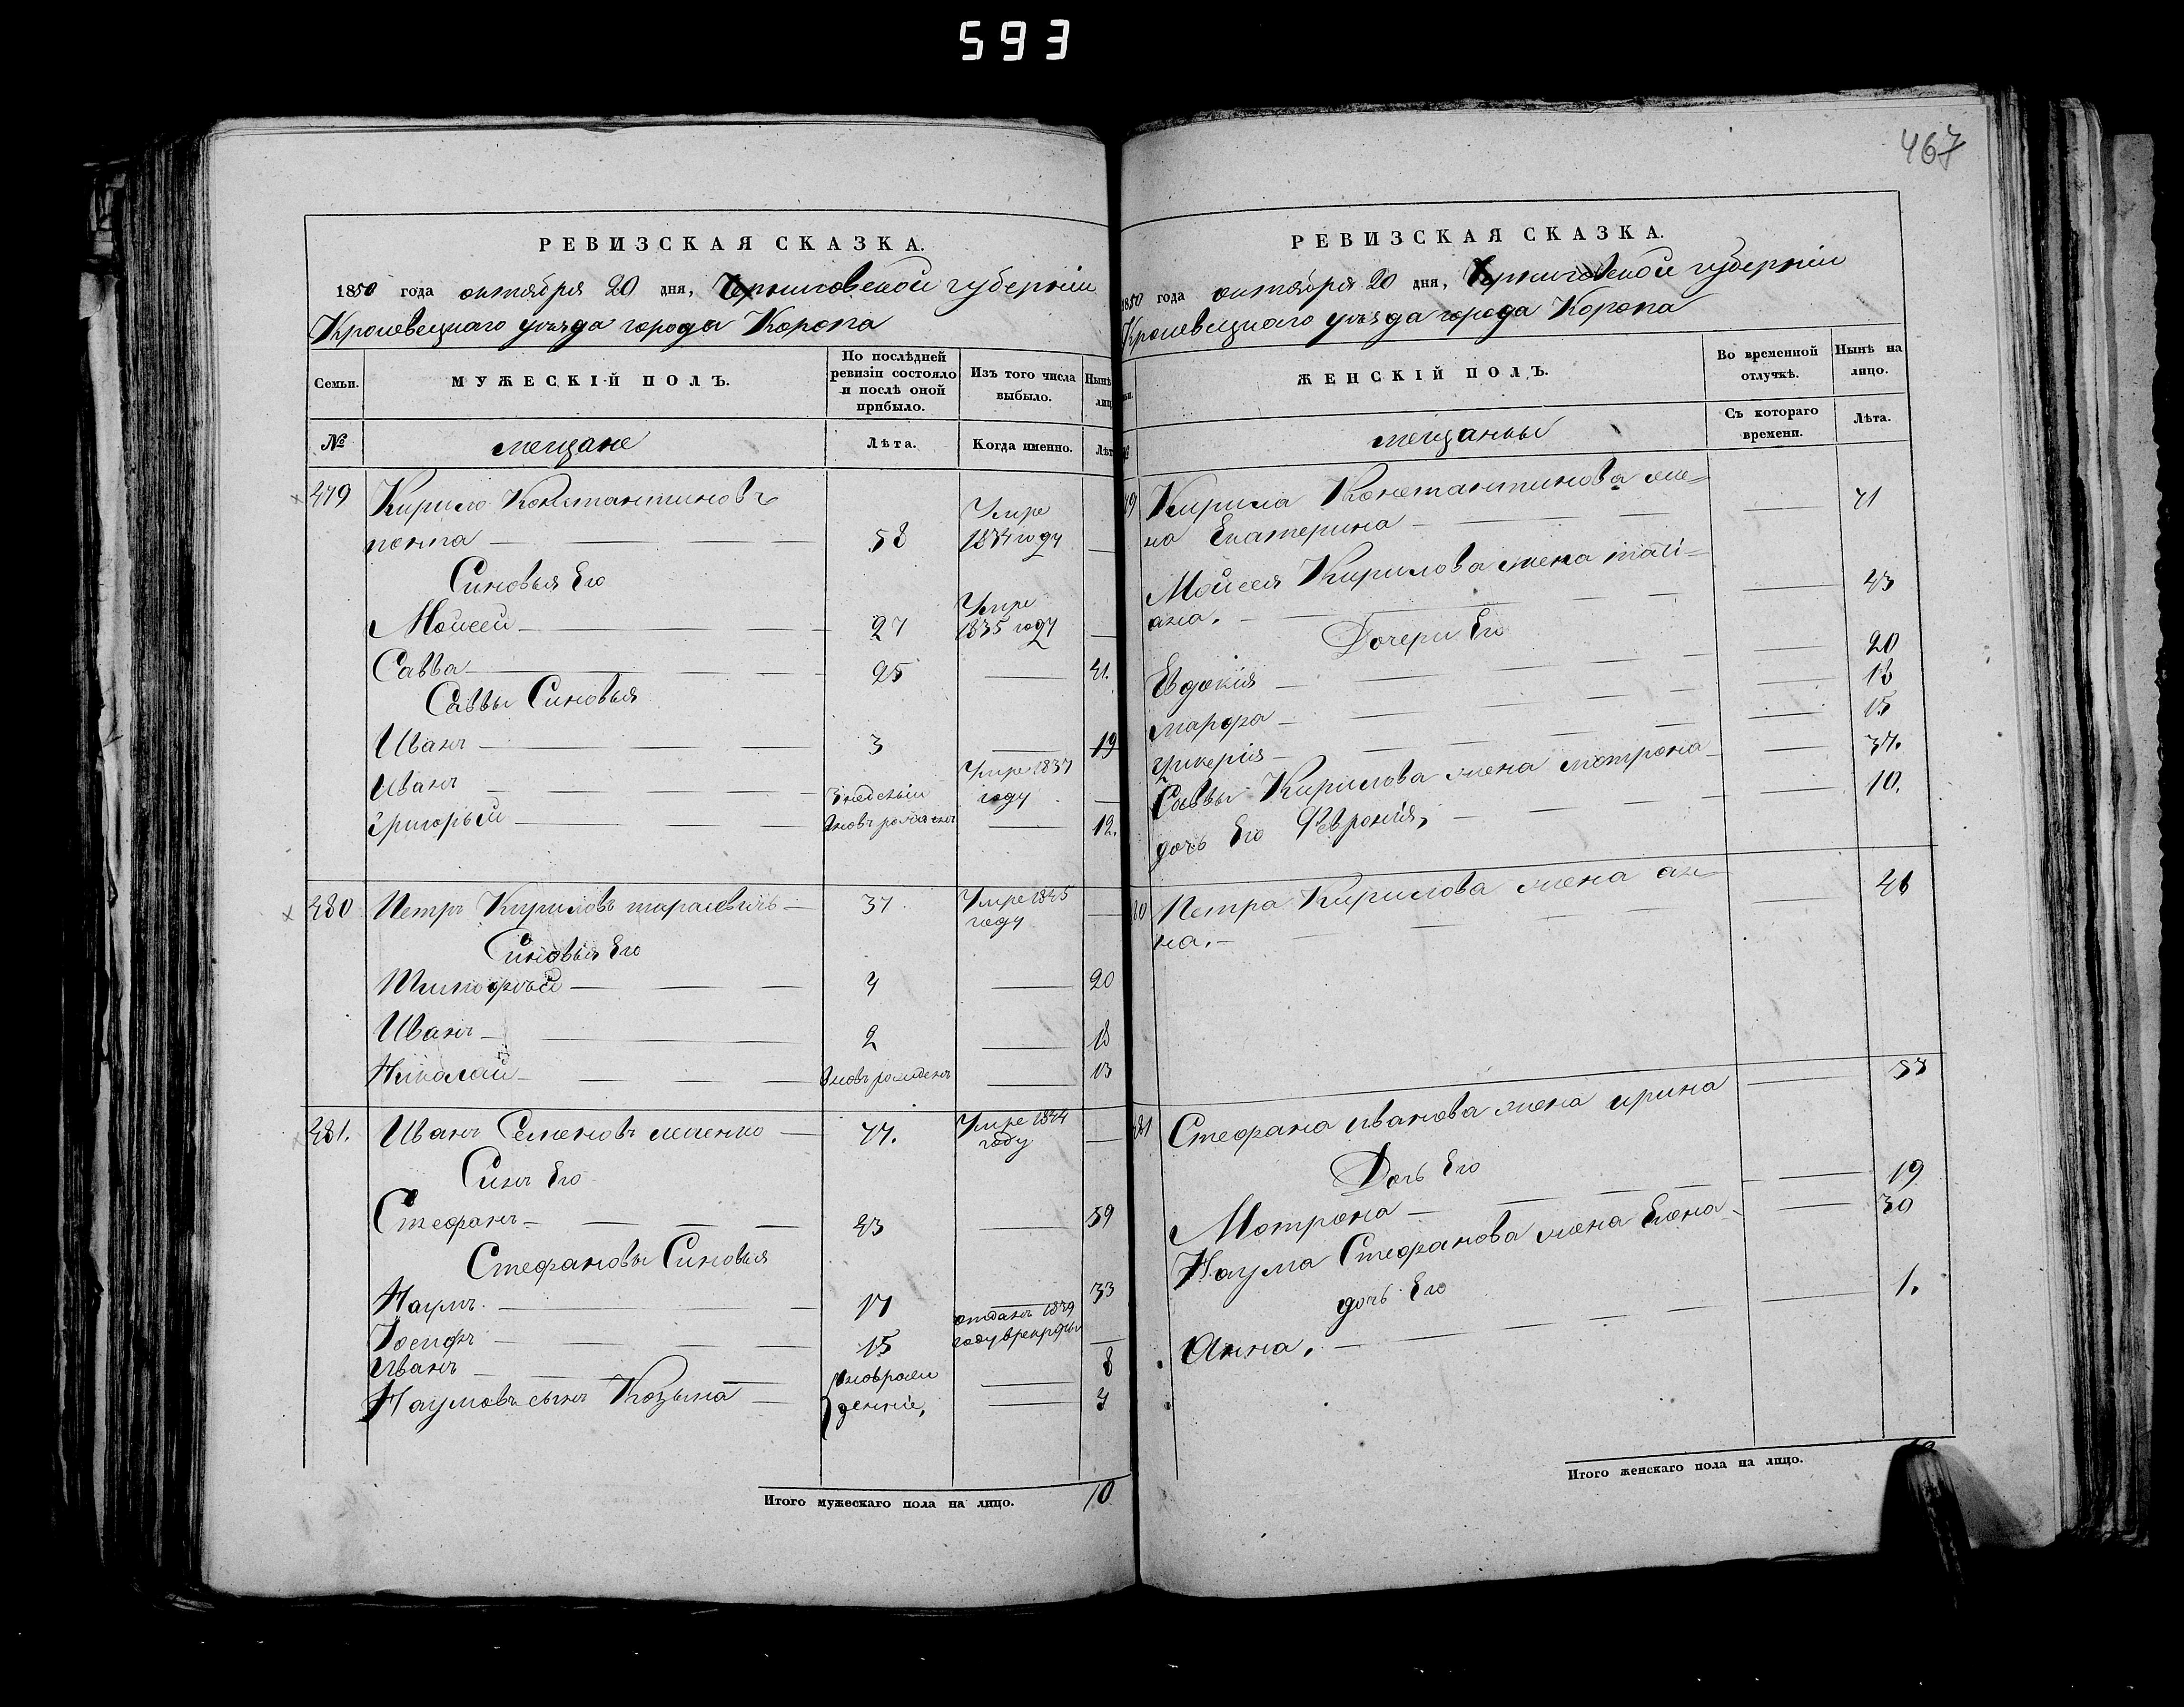 593
467
РЕВИЗСКАЯ СКАЗКА.
1850 года октября 20 дня, Черниговской губерніи
Кролевецкаго уезда города Коропа
Семьи.
МУЖЕСКІЙ ПОЛЪ.
По послѣдней ревизіи состояло и послѣ оной прибыло.
Изъ того числа выбыло.
Нынѣ
лиц
№
мещане
Лѣта.
Когда именно.
Лѣт
479 Кирило Константиновъ
58 Умре 1834 году
Синовья Его
Моисей 27 Умре 1835 году
Савва 25 41.
Саввы Синовья
Иванъ 3 19
Иванъ 3 недельи Умре 1837 году
Григорьи вновь рожденъ 12.
480 Петръ Кириловъ 37 Умре 1845 году
Синовья Его
Тимофѣй 4 20
Иванъ 2 18
Николай вновь рожденъ 13
481. Иванъ Семеновъ 77. Умре 1844 году
Синъ Его
Стефанъ 43 59
Стефановы Синовья
Наумъ 17 33
Іосифъ 15 отданъ 1839 году врекруты
Иванъ 8
Наумовъ сынъ Козьма 4
вноврож
денніе,
Итого мужескаго пола на лицо. 10
РЕВИЗСКАЯ СКАЗКА.
1850 года октября 20 дня, Черниговской губерніи
Кролевецкаго уезда города Коропа
ЖЕНСКІЙ ПОЛЪ.
Во временной отлучкѣ.
Нынѣ на лицо.
мещанкы
Съ котораго времени.
Лѣта.
79 Кирила Константинова же-
на Екатерина 71
Моисея Кирилова жена таті-
ана. 43
Дочери Его
Евдокія 20
марфа 18
гликерія 15
Саввы Кирилова жена мотрона 37.
дочь Его Феврония, 10.
80 Петра Кирилова жена ан-
на. 48
481 Стефана иванова жена ирина 57
Дочь Его
Мотрона 19
Наума Стефанова жена Елена 30
дочь Его
Анна. 1.
Итого женскаго пола на лицо.